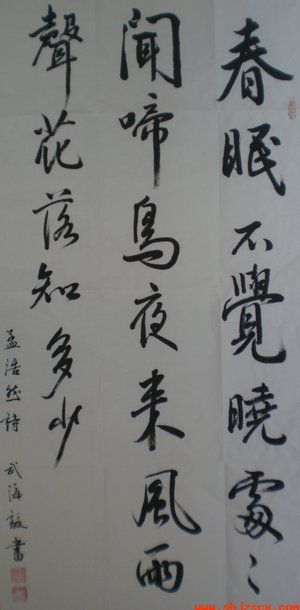 春眠不覺曉處々
聞啼鳥夜来風雨
聲花落知多少
孟浩然詩 武海 書